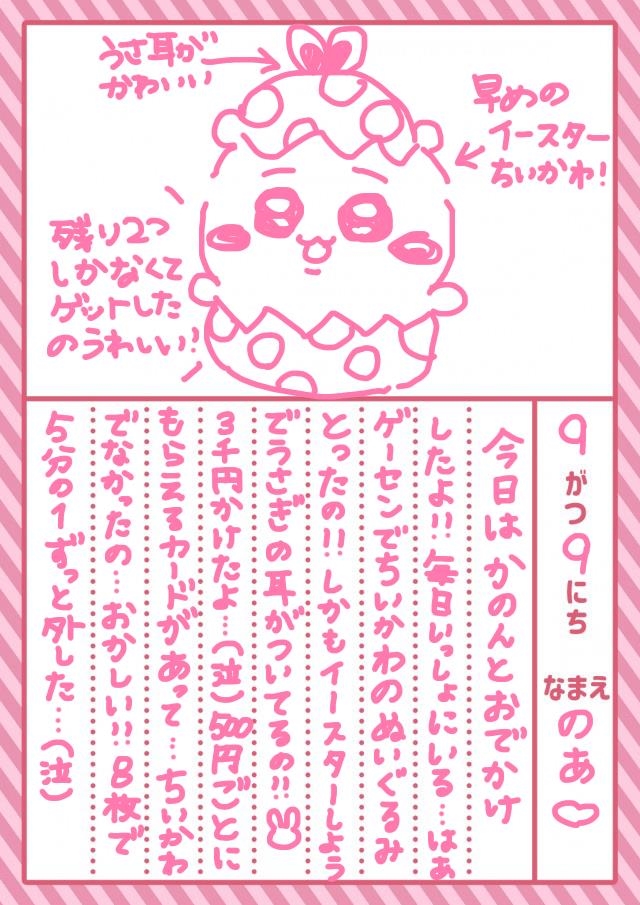 うさ耳が
かわいい
早めの
イースター
ちいかわ!
残り2つ
しかなくて
ゲットした
のうれしい!
9がつ9にち なまえ のあ♡
今日はかのんとおでかけ
したよ!! 毎日いっしょにいる…はぁ
ゲーセンでちいかわのぬいぐるみ
とったの!! しかもイースターしよう
でうさぎの耳がついてるの!!
3千円かけたよ…(泣)500円ごとに
もらえるカードがあって…ちいかわ
でなかったの…おかしい!! 8枚で
5分の1ずっと外した…(泣)